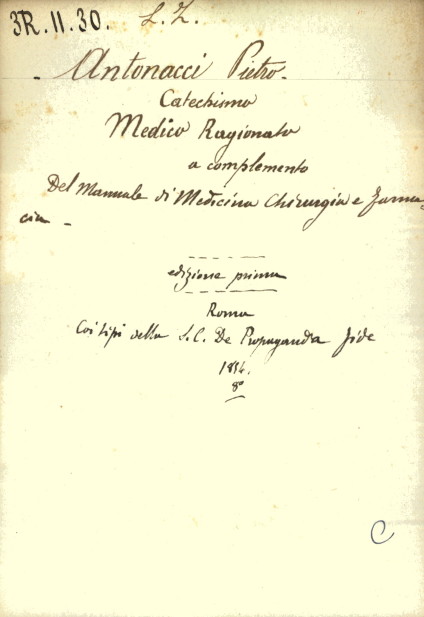 3R.11.30. L.Z.
Antonacci Pietro.
Catechismo
Medico Ragionato
a complemento
Del Manuale di Medicina Chirurgia e Farma-
cia -
edizione prima
Roma
Coi tipi della S.C. De Propaganda Fide
1854.
8°
C